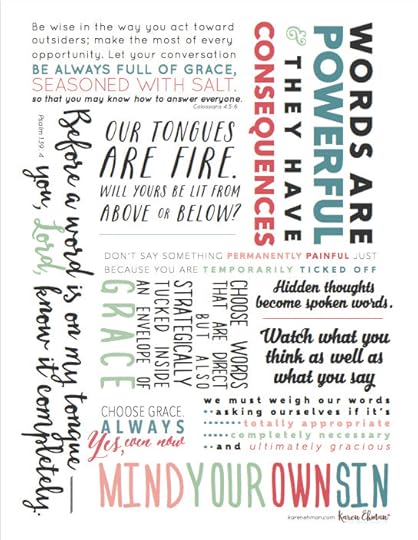 Be wise in the way you act toward
outsiders; make the most of every
opportunity. Let your conversation
BE ALWAYS FULL OF GRACE,
SEASONED WITH SALT.
so that you may know how to answer everyone.
Colossians 4:5-6
WORDS ARE
POWERFUL
& THEY HAVE
CONSEQUENCES
Psalm 139:4
Before a word is on my tongue—
you, Lord, know it completely.
OUR TONGUES
ARE FIRE.
WILL YOURS BE LIT FROM
ABOVE OR BELOW?
DON'T SAY SOMETHING PERMANENTLY PAINFUL JUST
BECAUSE YOU ARE TEMPORARILY TICKED OFF
CHOOSE WORDS
THAT ARE DIRECT
BUT ALSO
STRATEGICALLY
TUCKED INSIDE
AN ENVELOPE OF
GRACE
Hidden thoughts
become spoken words.
Watch what you
think as well as
what you say
CHOOSE GRACE.
ALWAYS
Yes, even now
we must weigh our words
asking ourselves if it's
totally appropriate
completely necessary
and ultimately gracious
MIND YOUR OWN SIN
karenehman.com Karen Ehman